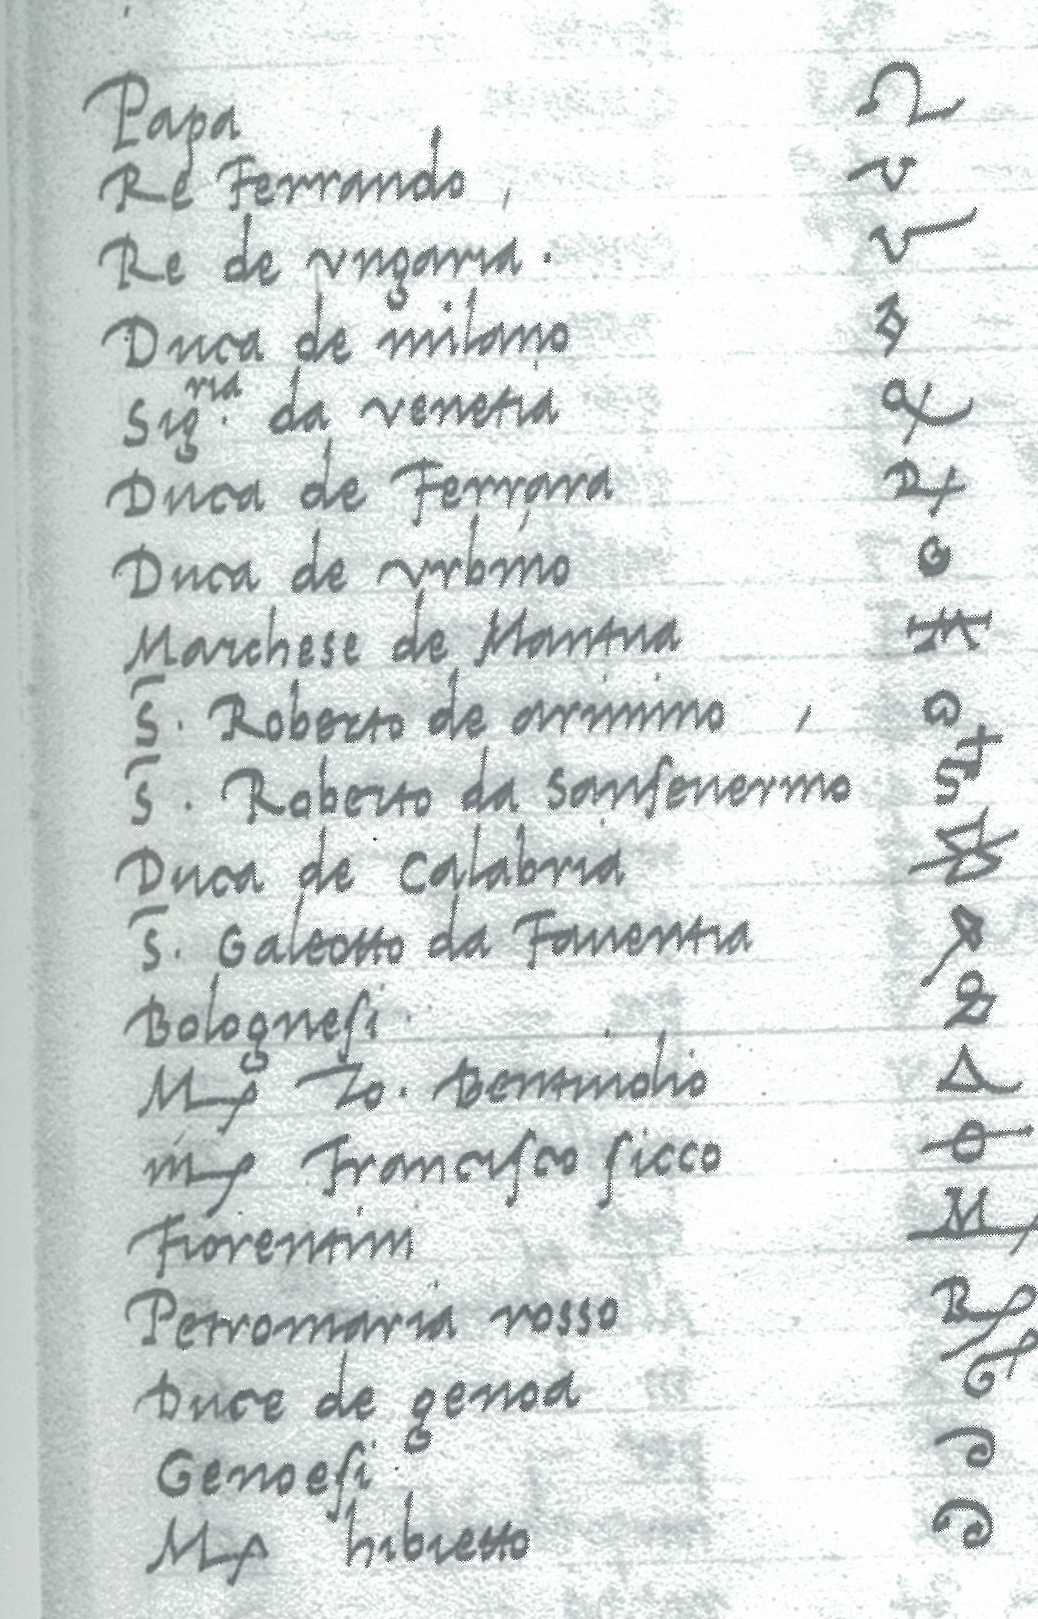 Papa
Re Ferrando
Re de vngaria.
Duca de milano
Sig.ria da venetia
Duca de Ferrara
Duca de vrbino
Marchese de Mantua
S. Roberto de arimino
S. Roberto da Sanseuermo
Duca de Calabria
S. Galeotto da Fauentia
Bolognesi.
Mp Zo. Bentiuolio
mp Francisco sicco
Fiorentini
Petromaria rosso
Duce de genoa
Genoesi.
Mp hibietto